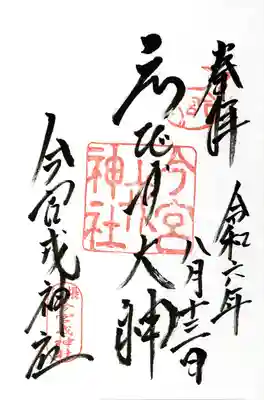 奉拝
令和六年
八月十三日
ゑびす大神
今宮戎神社
今宮戎神社